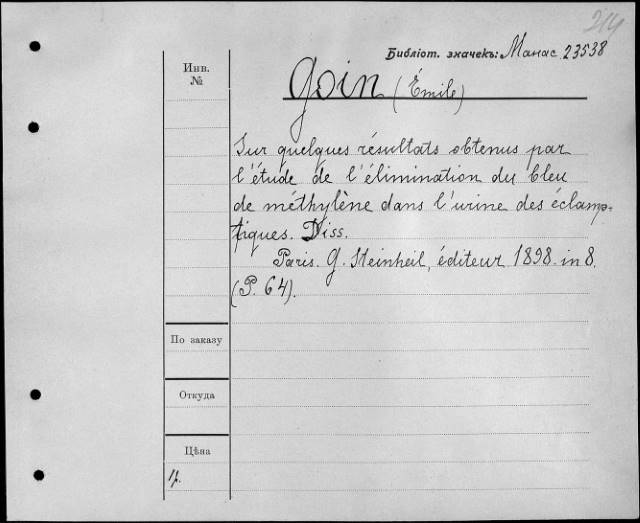 214
Библіот. значекъ: Манас. 23538
Инв.
№
Goin (Émile)
Sur quelques résultats obtenus par
l'étude de l'élimination du bleu
de méthylène dans l'urine des éclamp-
tiques. Diss.
Paris. G. Steinheil, éditeur 1898. in 8.
(P. 64).
По заказу
Откуда
Цѣна